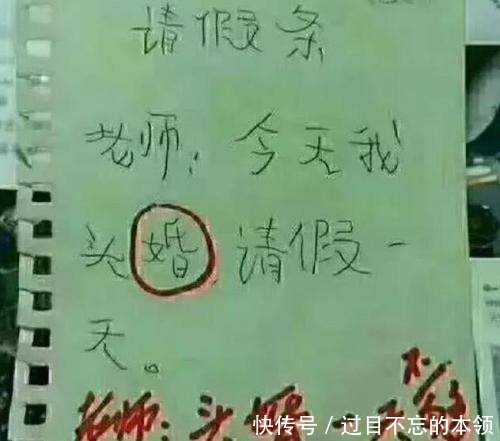 请假条
老师：今天我
头婚，请假一
天。
老师：头
快传号／过目不忘的本领